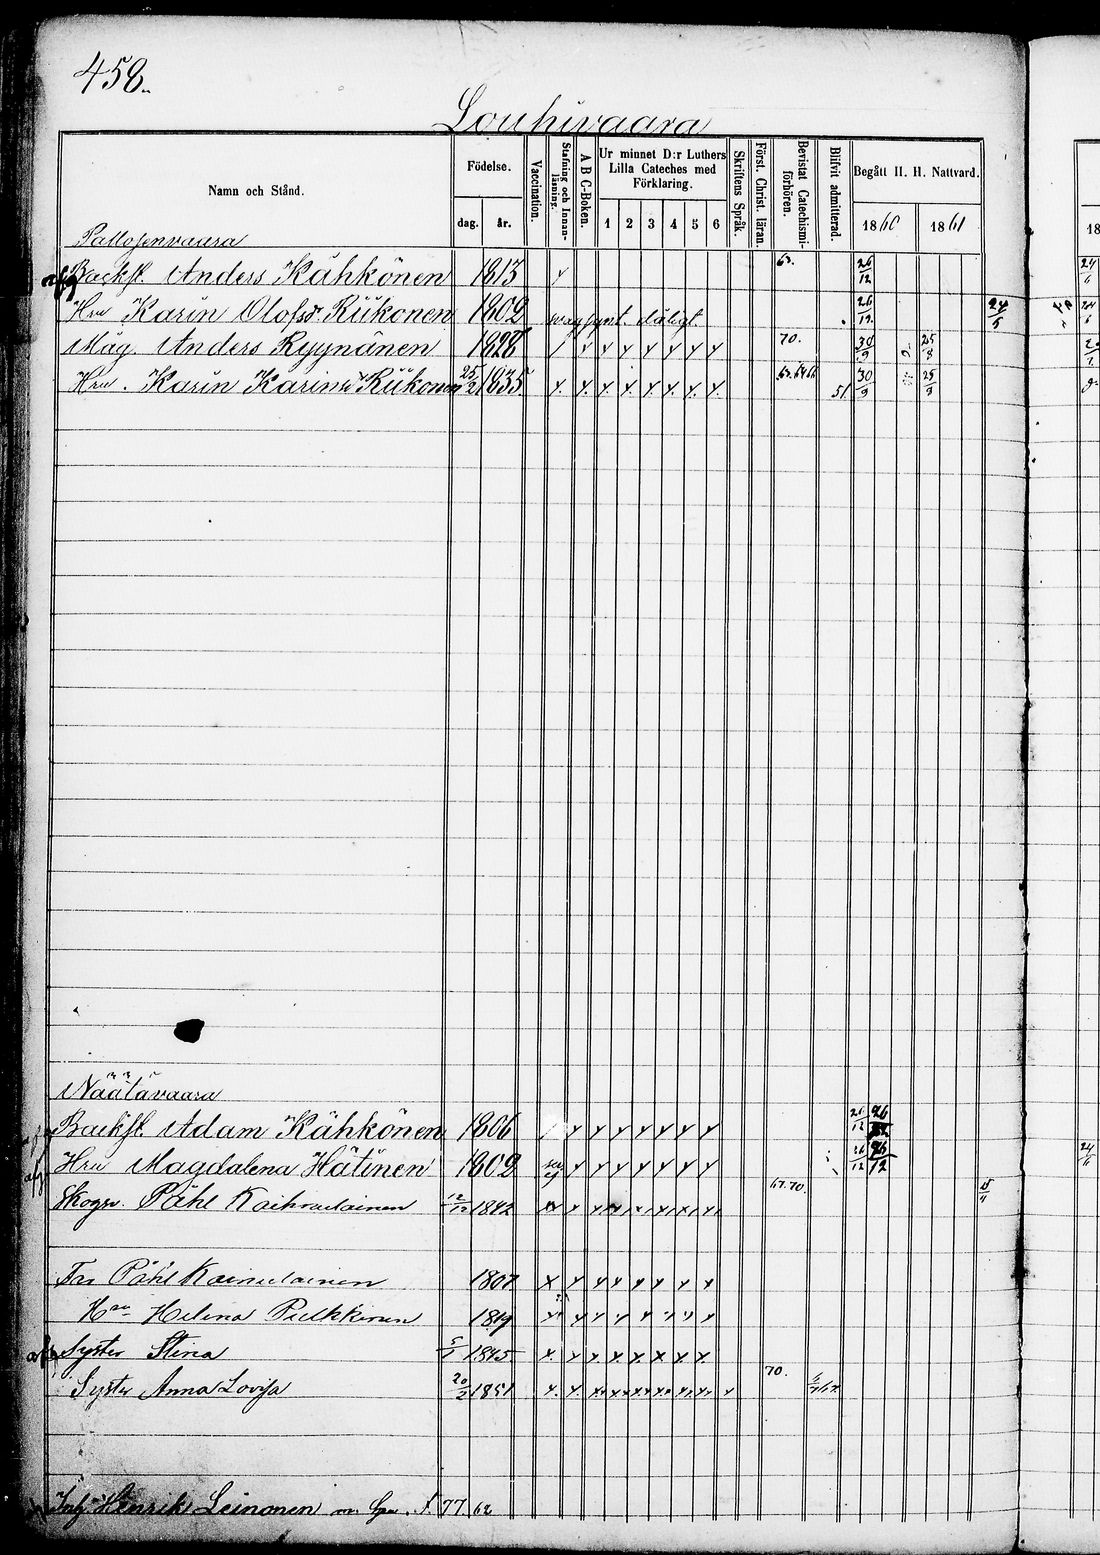 458.
Louhivaara
Namn och Stånd.
Födelse.
dag. år.
Vaccination.
Stafning och Innanläsning.
A B C-Boken.
Ur minnet D:r Luthers Lilla Cateches med Förklaring.
1 2 3 4 5 6
Skriftens Språk.
Först. Christ. läran.
Bevistat Catechismiförhören.
Blifvit admitterad.
Begått H. H. Nattvard.
1860 1861
18
Pallosenvaara
Backst. Anders Kähkönen 1813 63. 26/12 24/6
Hru Karin Olofsdr Riikonen 1802 svagsynt dåligt 26/12 24/5
Måg. Anders Ryynänen 1828 70. 30/9 25/8
Hru. Karin Riikonen 25/2 1835. 51 30/9 25/8
Näätävaara
Backst. Adam Kähkönen 1806 26/12
Hru Magdalena Hätinen 1802 26/12 24/6
Påhl 12/12 1842 67.70.
Påhl Kainulainen 1807
Hru Helena Pulkkinen 1819
Syster Stina 1845
Syster Anna Lovisa 20/2 1851 70.
Inh Henrik Leinonen f. 77. 62